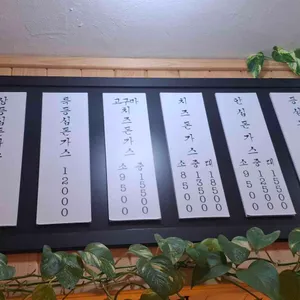 등심돈가스
특등심돈가스
12000
고구마
치즈돈가스
소 중
9500 15500
치즈돈가스
소 중 대
8500 13500 18500
안심돈가스
소 중 대
9500 12500 15500